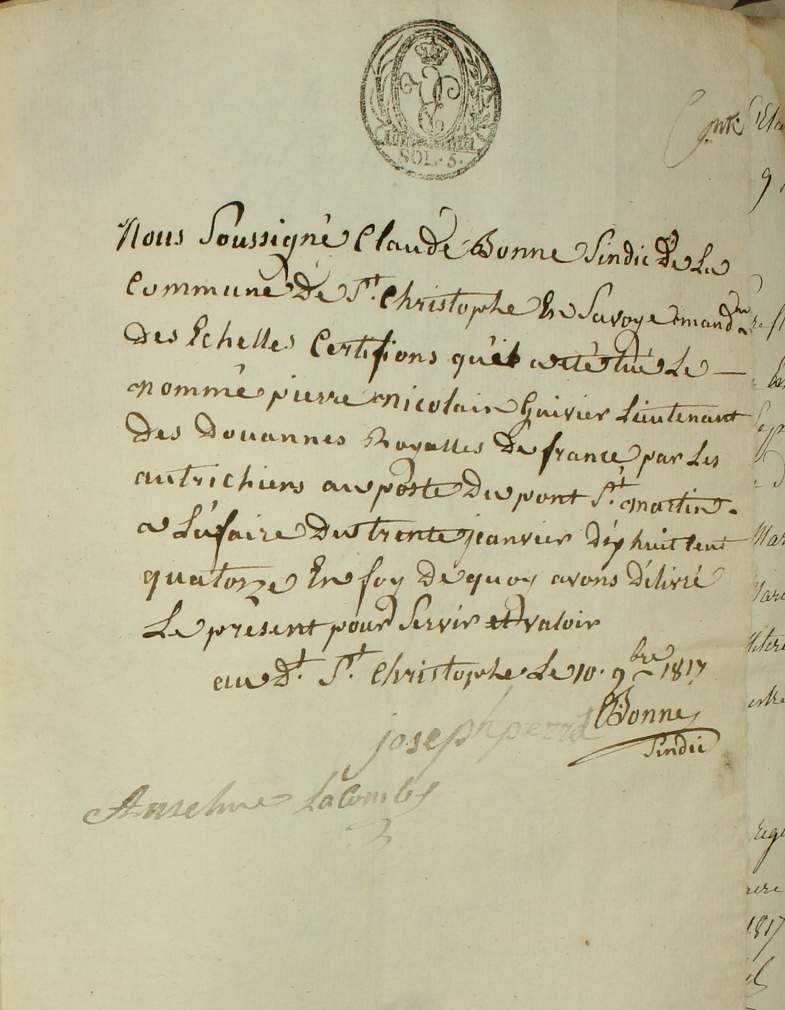 SOL. 5.
Nous Soussigné Claude Bonne Sindic De La
Commune De St. Christophe En Savoye mand.
Des Echelles Certifions qu'il a été tué Le
nommé pierre nicolain Guivier Lieutenant
Des Douannes Royalles De france par Les
autrichiens au poste Du pont St. martin
a L'afaire Du trente janvier dix huit cent
quatorze En foy De quoy avons Délivré
Le présent pour Servir et valoir
au Dt. St. Christophe Le 10. 9bre 1817
CBonne
joseph perret
Sindic
Anselme Lacombe
1817